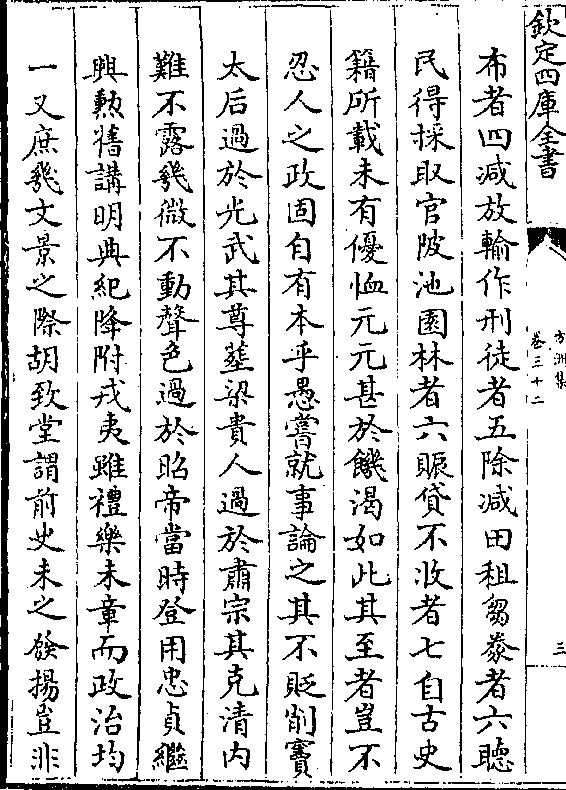 欽定四庫全書
方洲集
卷三十二
三
布者四减放輸作刑徒者五除减田租芻藁者六聽
民得採取官陂池園林者六賑貸不收者七自古史
籍所載未有優恤元元甚於饑渴如此其至者豈不
忍人之政固自有本乎愚嘗就事論之其不貶削竇
太后過於光武其尊塟梁貴人過於肅宗其克清内
難不露幾微不動聲色過於昭帝當時登用忠貞繼
興勲舊講明典紀降附戎夷雖禮樂未章而政治均
一又庶幾文景之際胡致堂謂前史未之發揚豈非